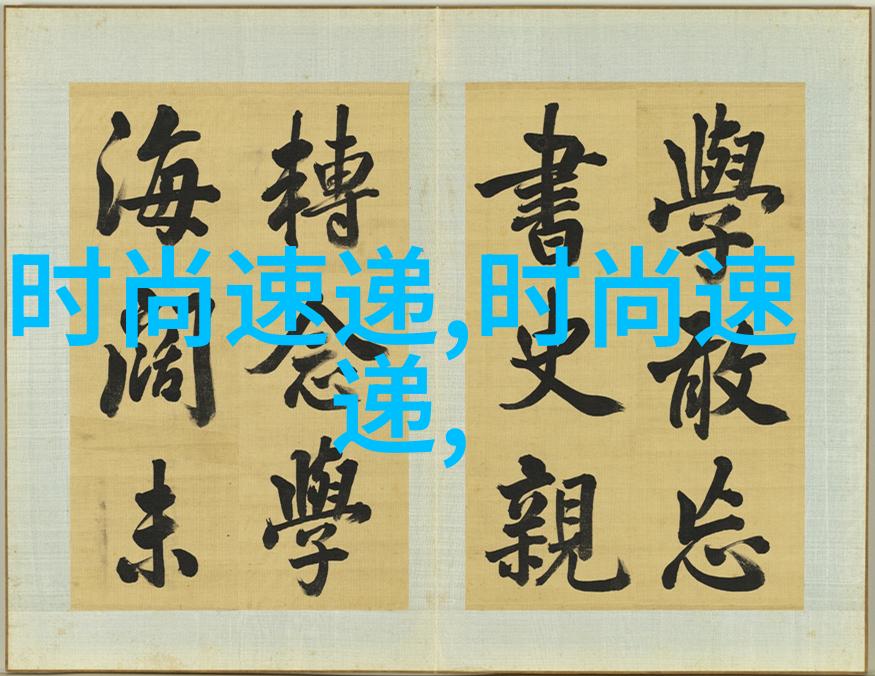 學敢忘
書史親
轉念學
海闊未
时尚速递,时尚速
递,